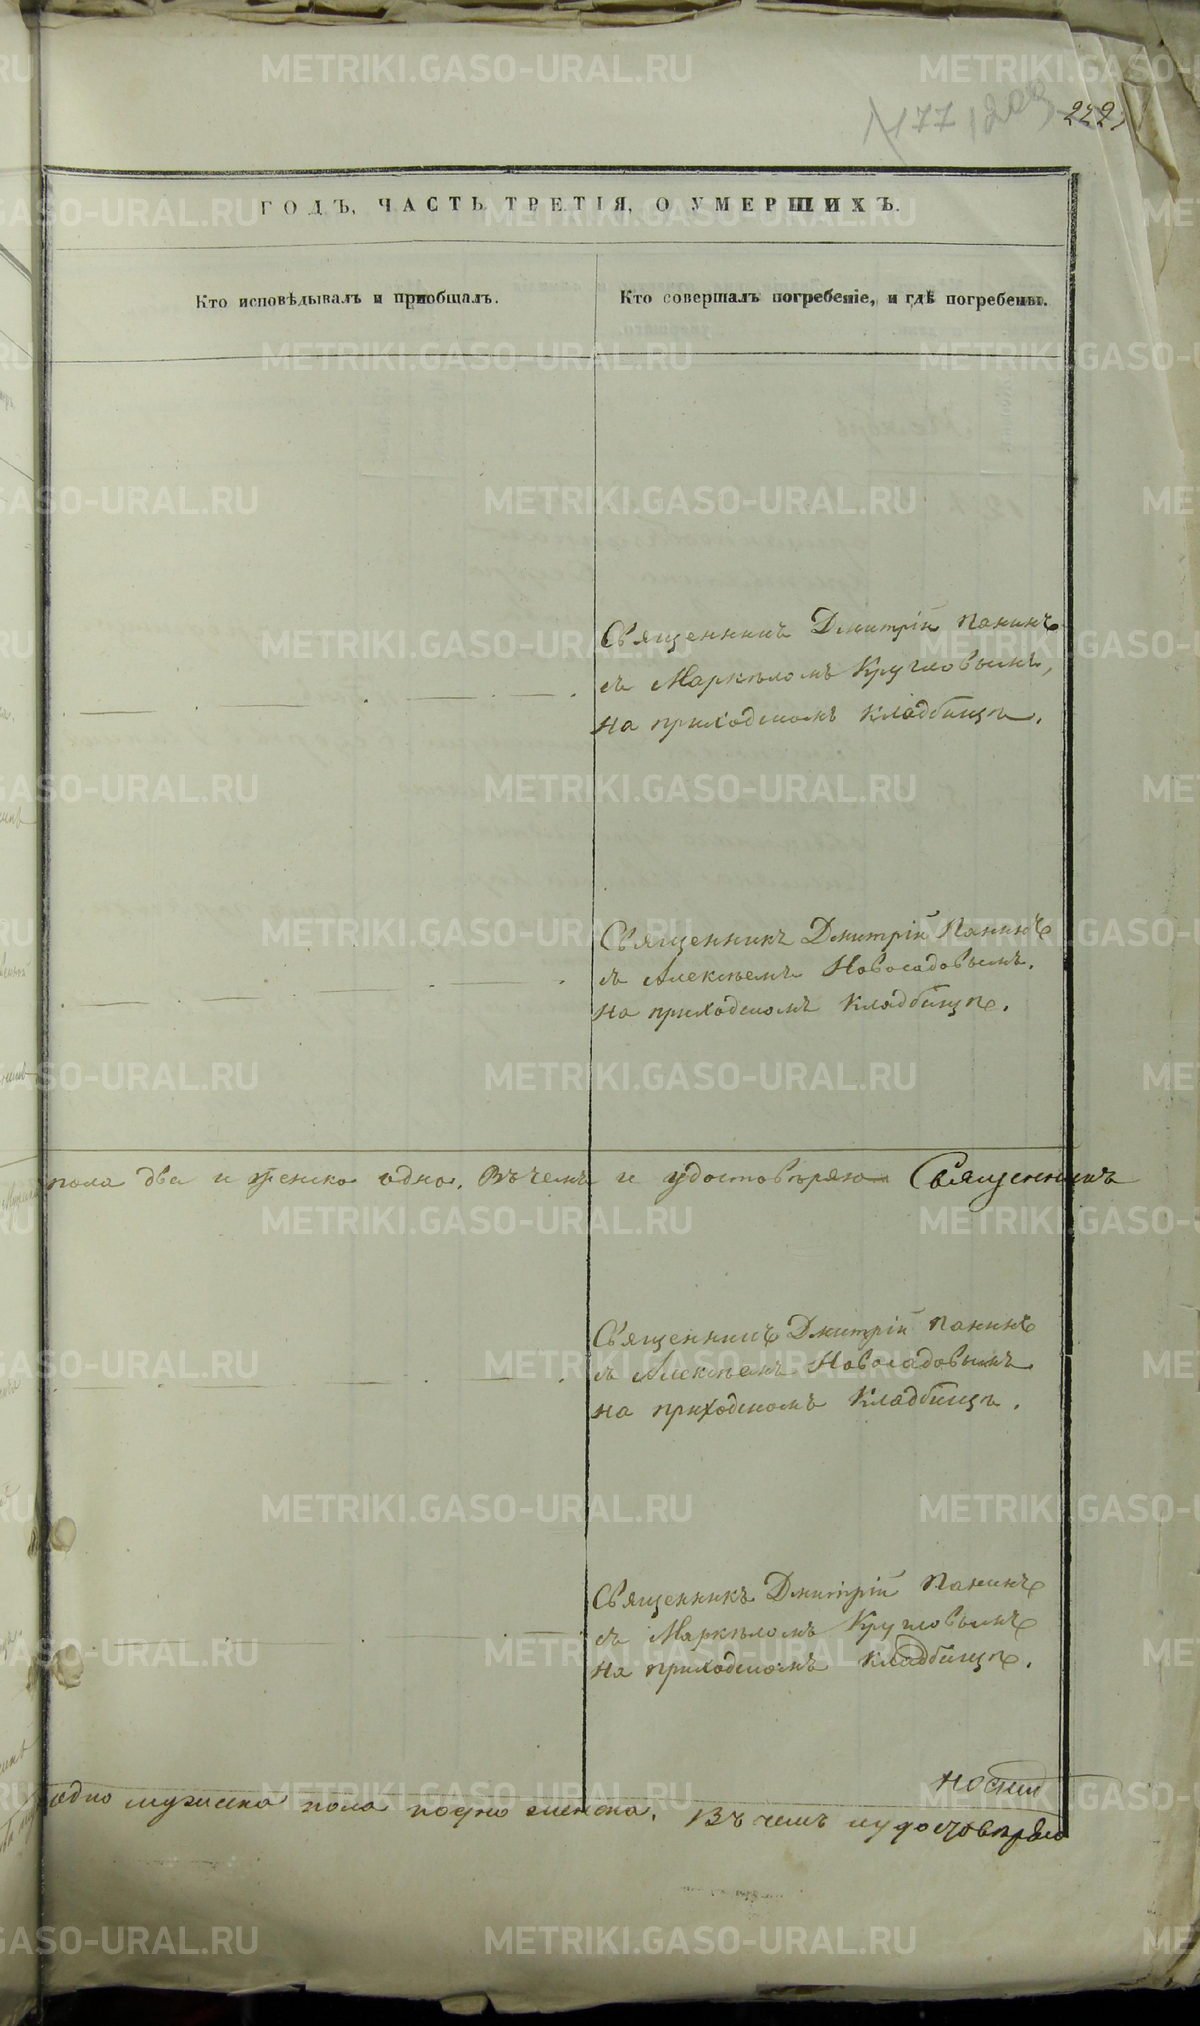 N177 203 222
ГОДЪ, ЧАСТЬ ТРЕТІЯ, О УМЕРШИХЪ.
Кто исповѣдывалъ и пріобщалъ.
Кто совершалъ погребеніе, и гдѣ погребены.
Священникъ Дмитрій Панинъ
съ Маркѣломъ Кругловымъ,
на приходскомъ кладбищѣ.
Священникъ Дмитрій Панинъ
съ Алексѣемъ Новосадовымъ.
на приходскомъ кладбищѣ.
пола два и женско одно. Въ чемъ и удостовѣряю Священникъ
Священникъ Дмитрій Панинъ
съ Алексѣемъ Новосадовымъ
на приходскомъ кладбищѣ.
Священникъ Дмитрій Панинъ
съ Маркѣломъ Кругловымъ
на приходскомъ кладбищѣ.
одно мужеска пола и одно женска. Въ чемъ и удостовѣряю
METRIKI.GASO-URAL.RU